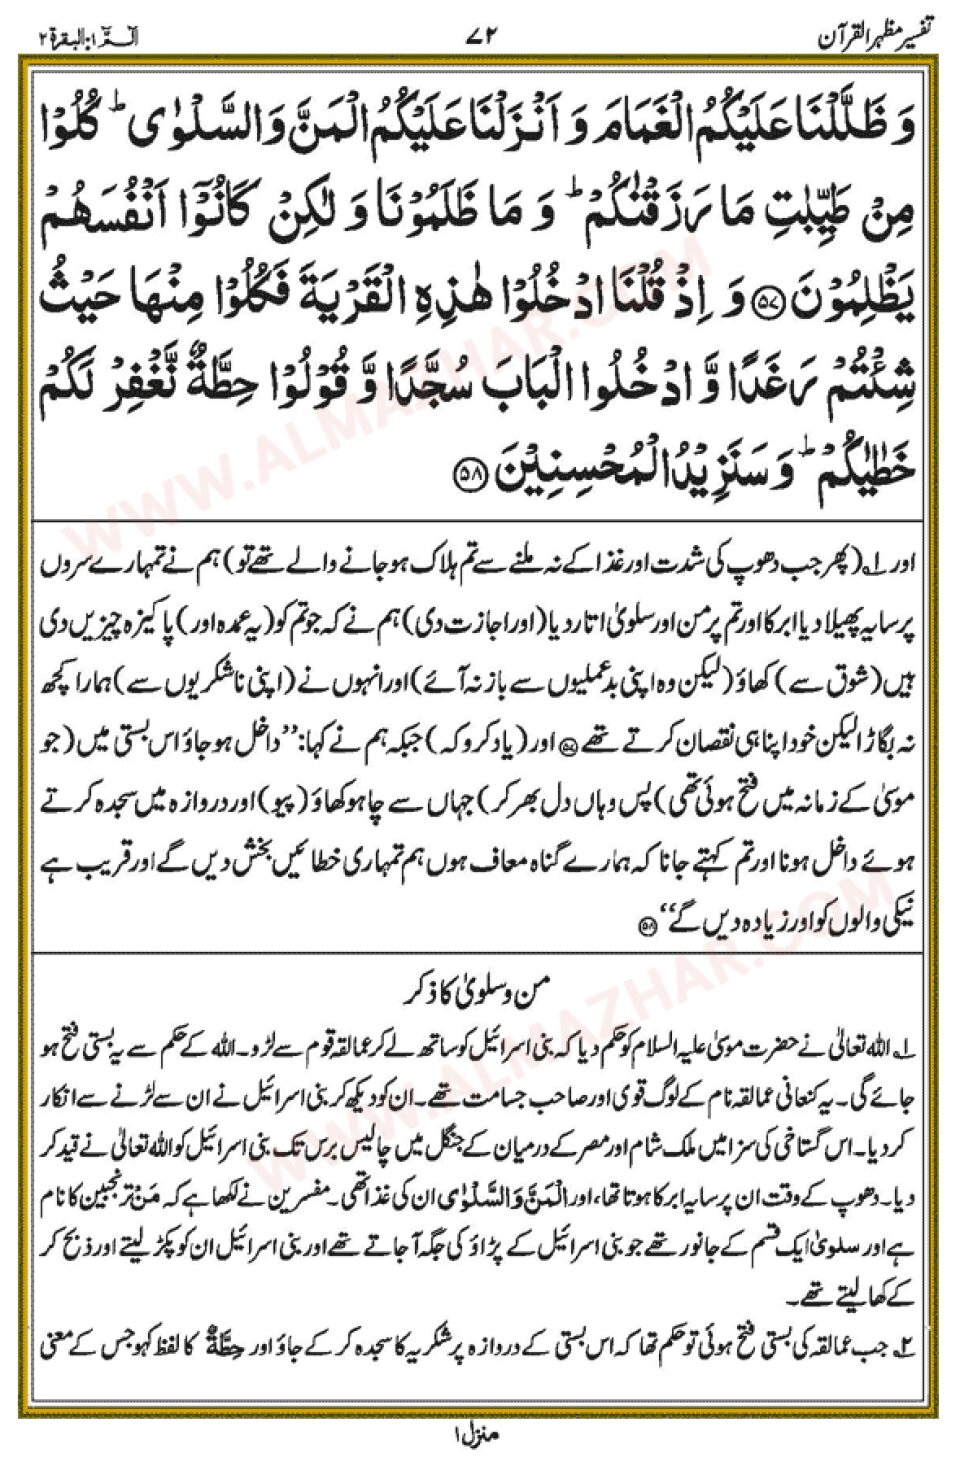 تفسیر مظہر القرآن ۷۲ الٓمّٓ ۱: البقرۃ ۲
وَ ظَلَّلْنَا عَلَیْكُمُ الْغَمَامَ وَ اَنْزَلْنَا عَلَیْكُمُ الْمَنَّ وَ السَّلْوٰی ؕ كُلُوْا
مِنْ طَیِّبٰتِ مَا رَزَقْنٰكُمْ ؕ وَ مَا ظَلَمُوْنَا وَ لٰكِنْ كَانُوْۤا اَنْفُسَهُمْ
یَظْلِمُوْنَ ﴿۵۷﴾ وَ اِذْ قُلْنَا ادْخُلُوْا هٰذِهِ الْقَرْیَةَ فَكُلُوْا مِنْهَا حَیْثُ
شِئْتُمْ رَغَدًا وَّ ادْخُلُوا الْبَابَ سُجَّدًا وَّ قُوْلُوْا حِطَّةٌ نَّغْفِرْ لَكُمْ
خَطٰیٰكُمْ ؕ وَ سَنَزِیْدُ الْمُحْسِنِیْنَ ﴿۵۸﴾
اور ۱؎ (پھر جب دھوپ کی شدت اور غذا کے نہ ملنے سے تم ہلاک ہو جانے والے تھے تو) ہم نے تمہارے سروں
پر سایہ پھیلا دیا ابر کا اور تم پر من اور سلویٰ اتار دیا (اور اجازت دی) ہم نے کہ جو تم کو (یہ عمدہ اور) پاکیزہ چیزیں دی
ہیں (شوق سے) کھاؤ (لیکن وہ اپنی بدعملیوں سے باز نہ آئے) اور انہوں نے (اپنی ناشکریوں سے) ہمارا کچھ
نہ بگاڑا لیکن خود اپنا ہی نقصان کرتے تھے ﴿۵۷﴾ اور (یاد کرو کہ) جبکہ ہم نے کہا: ’’داخل ہو جاؤ اس بستی میں (جو
موسیٰ کے زمانہ میں فتح ہوئی تھی) پس وہاں دل بھر کر) جہاں سے چاہو کھاؤ (پیو) اور دروازہ میں سجدہ کرتے
ہوئے داخل ہونا اور تم کہتے جانا کہ ہمارے گناہ معاف ہوں ہم تمہاری خطائیں بخش دیں گے اور قریب ہے
نیکی والوں کو اور زیادہ دیں گے‘‘ ﴿۵۸﴾
من و سلویٰ کا ذکر
۱؎ اللہ تعالیٰ نے حضرت موسیٰ علیہ السلام کو حکم دیا کہ بنی اسرائیل کو ساتھ لے کر عمالقہ قوم سے لڑو۔ اللہ کے حکم سے یہ بستی فتح ہو
جائے گی۔ یہ کنعانی عمالقہ نام کے لوگ قوی اور صاحب جسامت تھے۔ ان کو دیکھ کر بنی اسرائیل نے ان سے لڑنے سے انکار
کر دیا۔ اس گستاخی کی سزا میں ملک شام اور مصر کے درمیان کے جنگل میں چالیس برس تک بنی اسرائیل کو اللہ تعالیٰ نے قید کر
دیا۔ دھوپ کے وقت ان پر سایہ ابر کا ہوتا تھا، اور الْمَنَّ وَالسَّلْوٰی ان کی غذا تھی۔ مفسرین نے لکھا ہے کہ مَنّ ترنجبین کا نام
ہے اور سلویٰ ایک قسم کے جانور تھے جو بنی اسرائیل کے پڑاؤ کی جگہ آ جاتے تھے اور بنی اسرائیل ان کو پکڑ لیتے اور ذبح کر
کے کھا لیتے تھے۔
۲؎ جب عمالقہ کی بستی فتح ہوئی تو حکم تھا کہ اس بستی کے دروازہ پر شکریہ کا سجدہ کر کے جاؤ اور حِطَّةٌ کا لفظ کہو جس کے معنی
منزل ۱
WWW.ALMAZHAR.COM
WWW.ALMAZHAR.COM